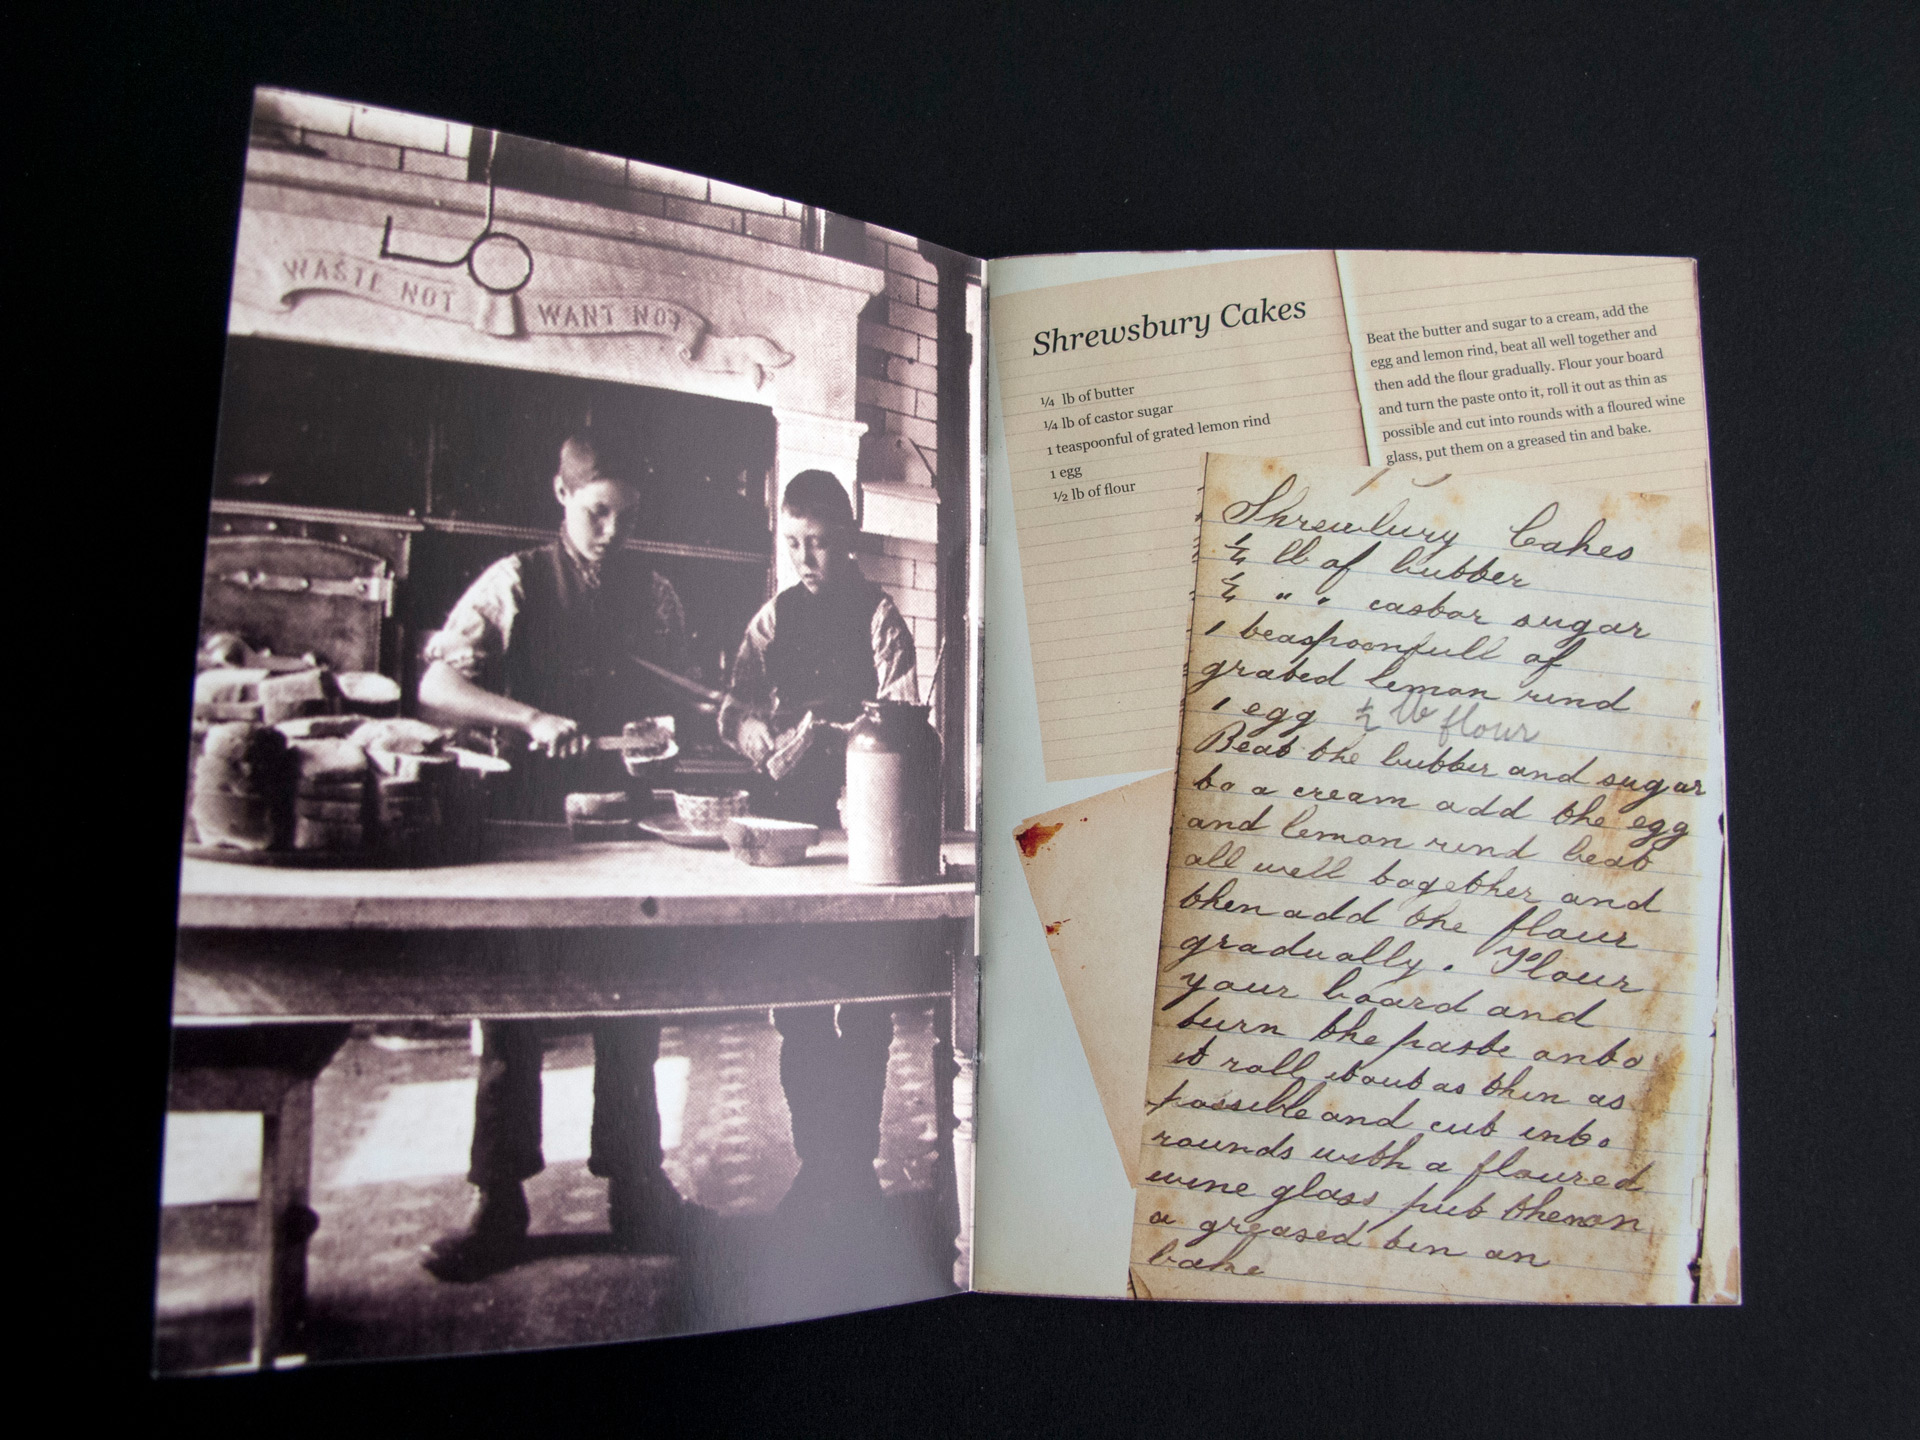 WASTE NOT WANT NOT
Shrewsbury Cakes
¼ lb of butter
¼ lb of castor sugar
1 teaspoonful of grated lemon rind
1 egg
½ lb of flour
Beat the butter and sugar to a cream, add the
egg and lemon rind, beat all well together and
then add the flour gradually. Flour your board
and turn the paste onto it, roll it out as thin as
possible and cut into rounds with a floured wine
glass, put them on a greased tin and bake.
Shrewbury Cakes
¼ lb of butter
¼ " " castor sugar
1 teaspoonfull of
grated lemon rind
1 egg ½ lb flour
Beat the butter and sugar
to a cream add the egg
and lemon rind beat
all well together and
then add the flour
gradually. Flour
your board and
turn the paste onto
it roll it out as thin as
possible and cut into
rounds with a floured
wine glass put them on
a greased tin an
bake